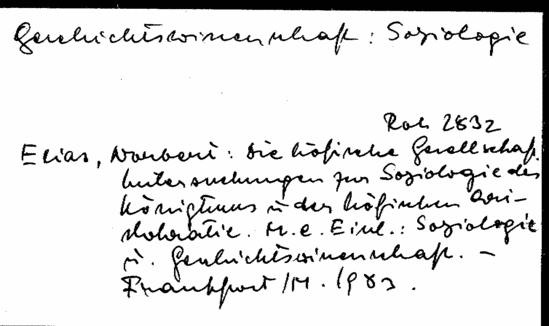 Geschichtswissenschaft: Soziologie
Roh 2832
Elias, Norbert: Die höfische Gesellschaft.
Untersuchungen zur Soziologie des
Königtums u. der höfischen Ari-
stokratie. M. e. Einl.: Soziologie
u. Geschichtswissenschaft. –
Frankfurt/M. 1983.